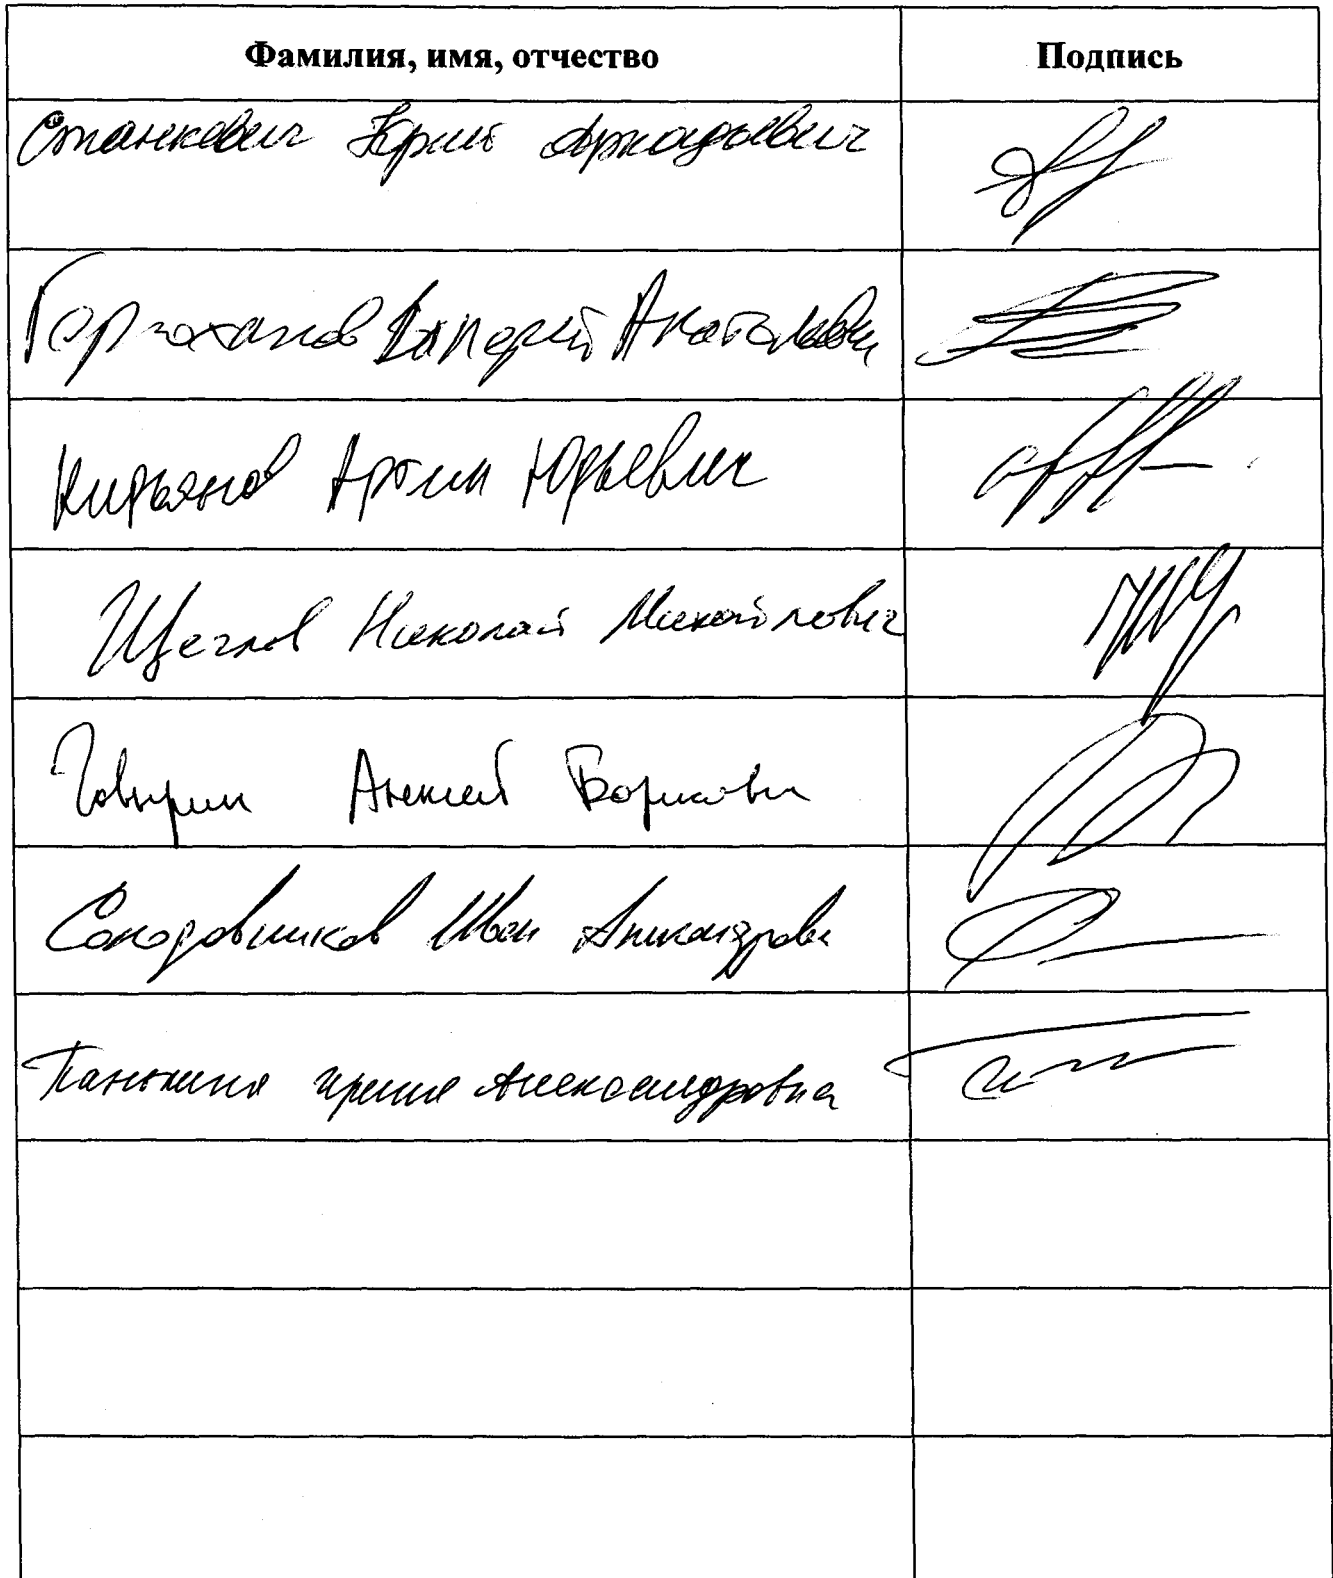 Фамилия, имя, отчество Подпись
Станкевич Юрий Аркадьевич
Валерий Анатольевич
Кирьянов Артём Юрьевич
Щеглов Николай Михайлович
Говырин Алексей Борисович
Солодовников Иван Александрович
Панькина Ирина Александровна